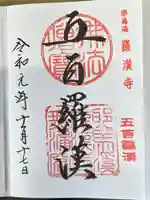 耶馬渓 羅漢寺
五百羅漢
五百羅漢
令和元年十一月十七日